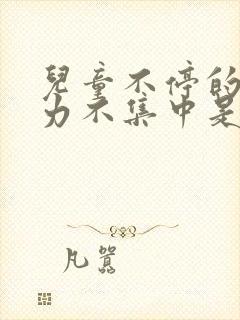 兒童不停的
力不集中是
凡囂